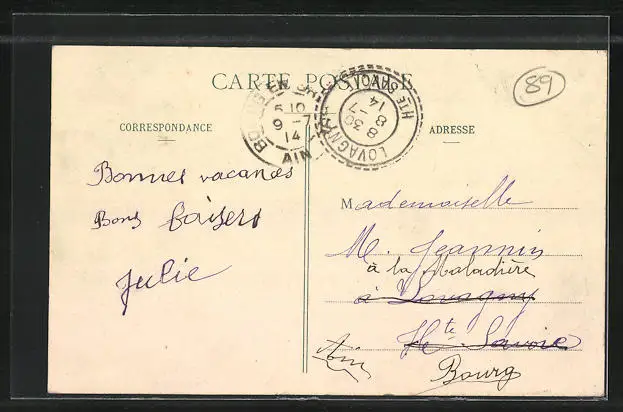 CARTE POSTALE
89
BOURG EN BRESSE
5 10
9 -7
14
AIN
LOVAGNY
8 30
8 -7
14
HTE SAVOIE
CORRESPONDANCE
ADRESSE
Bonnes vacances
Bons baisers
Julie
Mademoiselle
M. Jeannin
à la Maladière
à Lovagny
Hte Savoie
Ain
Bourg